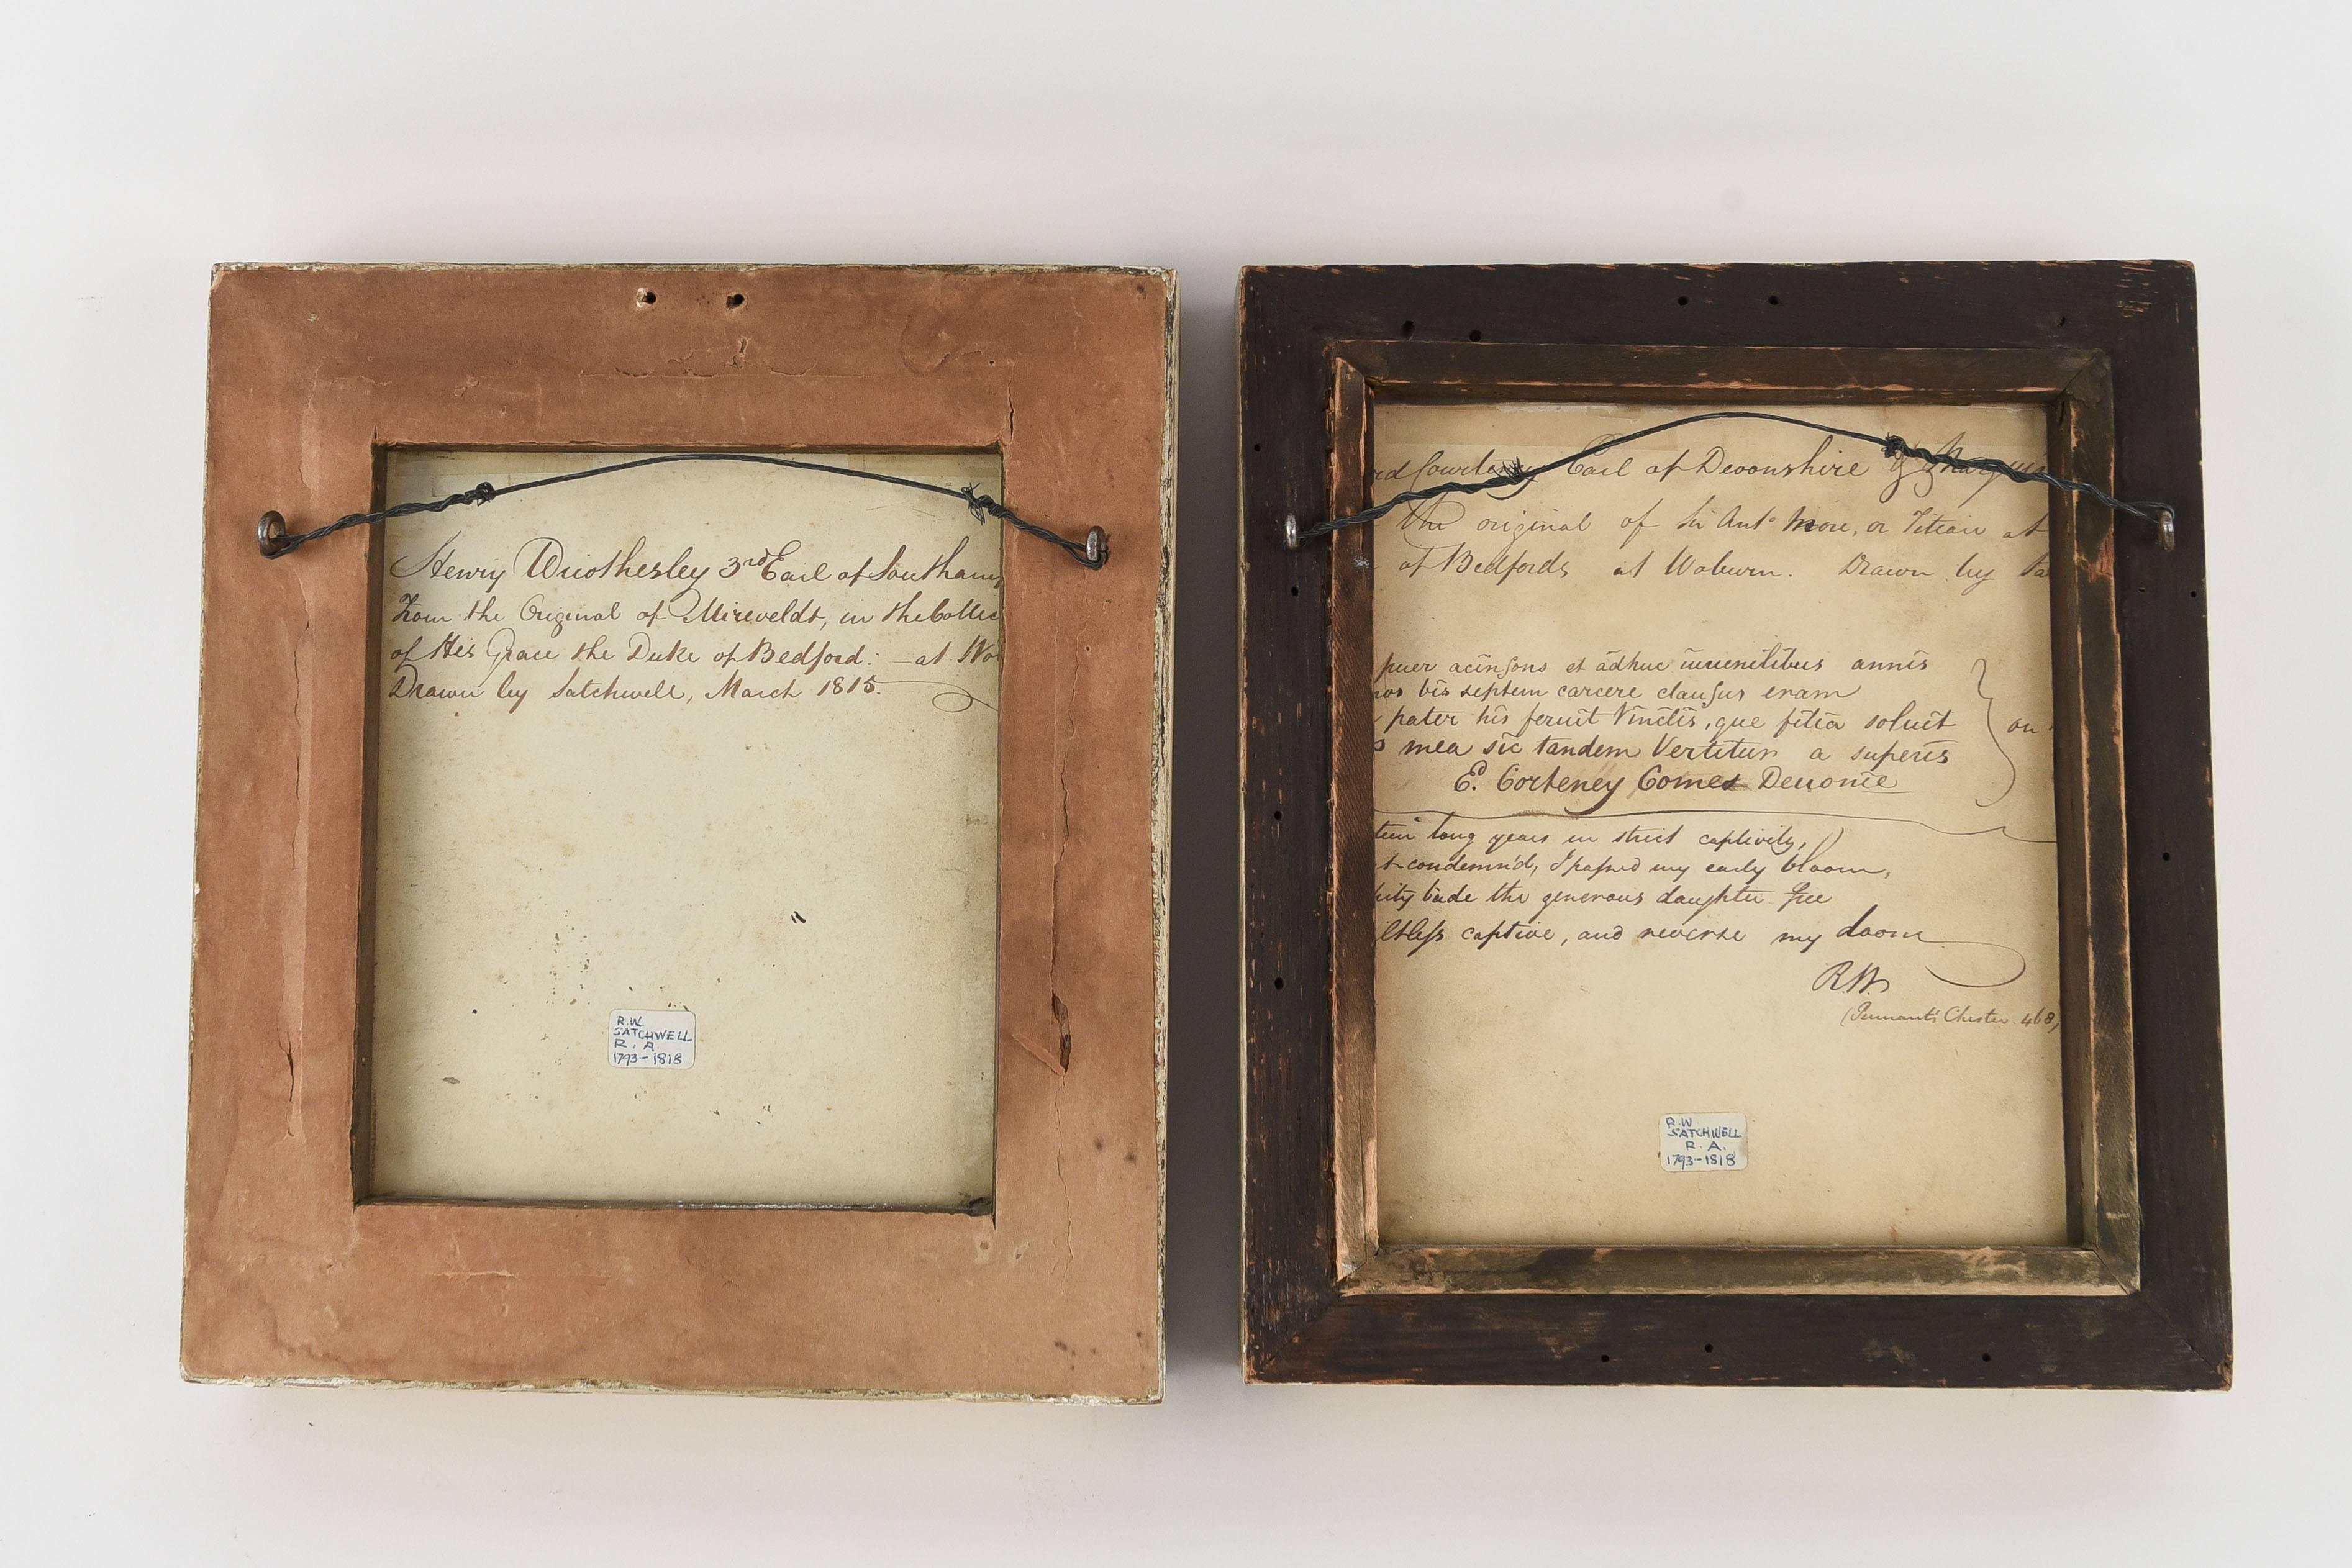 Henry Wriothesley 3rd Earl of Southam
From the Original of Mireveldt, in the Collec
of His Grace the Duke of Bedford: — at Wo
Drawn by Satchwell, March 1815.
R.W.
SATCHWELL
R. A.
1793-1818
rd Courteney Earl of Devonshire & Marquis
the original of Sir Anto More, or Titian at
of Bedfords at Woburn. Drawn by Sa
puer acinsons et adhuc iuuenilibus annis
nos bis septem carcere clausus eram
pater his feruit Vinclis, que filia soluit
mea sic tandem Vertitur a superis
on
Ed. Corteney Comes Deuonie
teen long years in strict captivity,
t-condemn'd, I passed my early bloom,
uity bade the generous daughter free
iltless captive, and reverse my doom
R.W.
(Pennant's Chester 468)
R.W.
SATCHWELL
R. A.
1793-1818